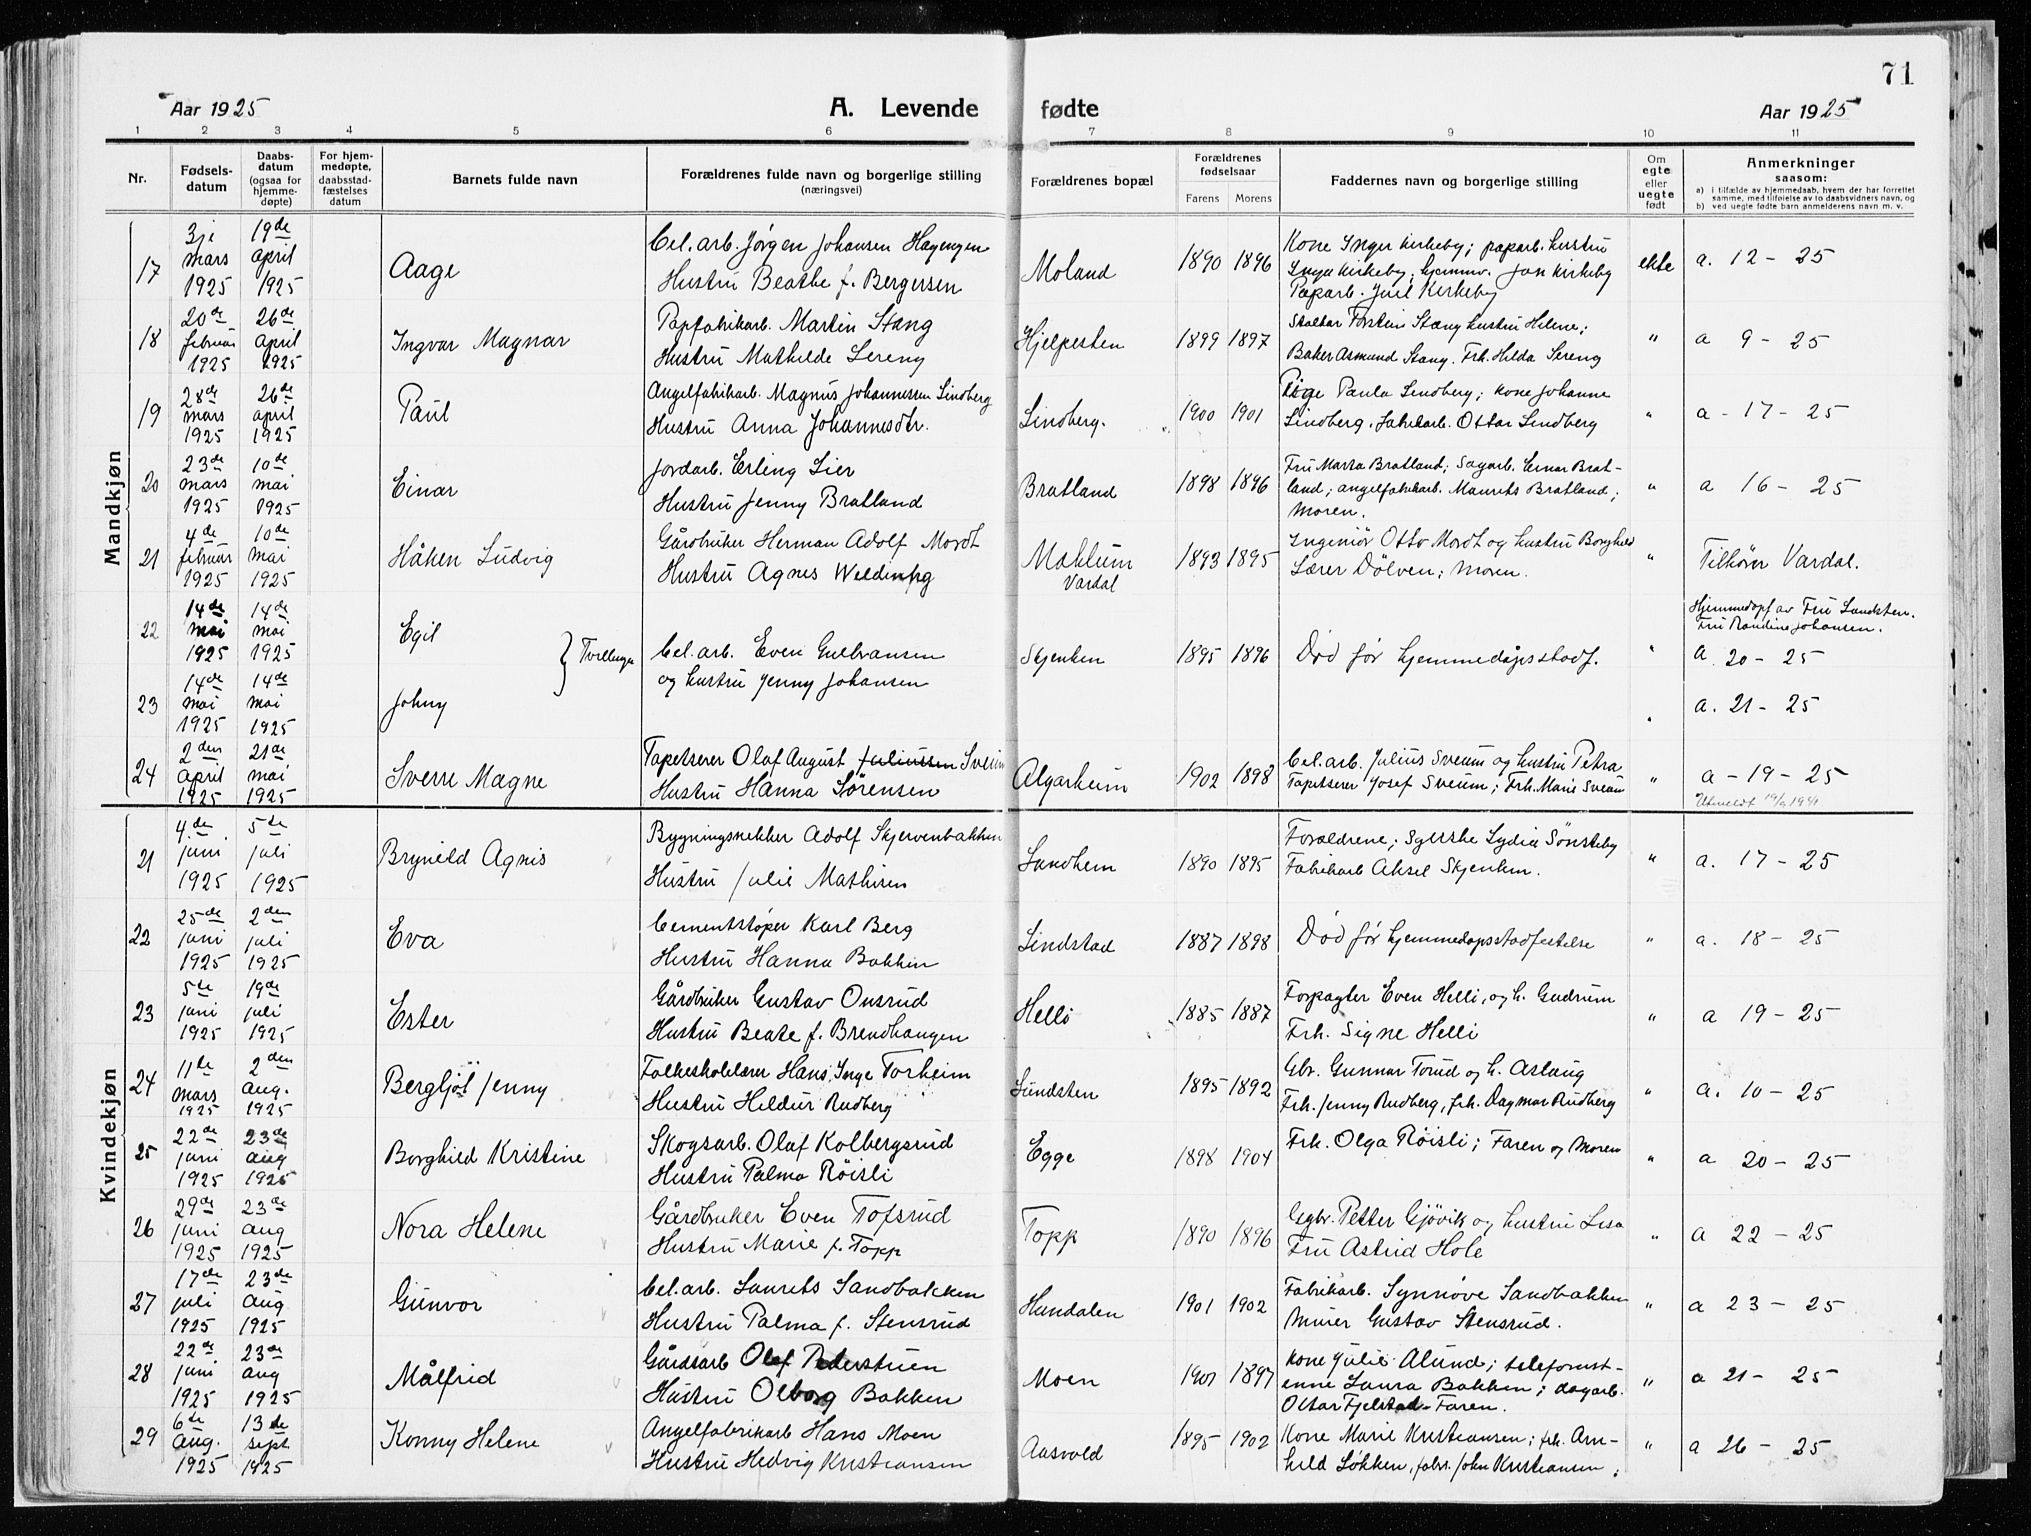 71
Aar 1925 A. Levende fødte Aar 1925
1 2 3 4 5 6 7 8 9 10 11
Nr. Fødsels-datum Daabs-datum (ogsaa for hjemme-døpte) For hjem-medøpte, daabsstad-fæstelses datum Barnets fulde navn Forældrenes fulde navn og borgerlige stilling (næringsvei) Forældrenes bopæl Forældrenes fødselsaar Farens Morens Faddernes navn og borgerlige stilling Om egte eller uegte født Anmerkninger saasom:
a) i tilfælde av hjemmedaab, hvem der har forrettet samme, med tilføielse av to daabsvidners navn, og
b) ved uegte fødte barn anmelderens navn m. v.
Mandkjøn
17 3je mars 1925 19de april 1925 Aage Cel.arb. Jørgen Johansen Hagengen
Hustru Beathe f. Bergersen Moland 1890 1896 Kone Inger Kirkeby; paparb. hustru
Inga Kirkeby; hjemmv. Jon Kirkeby
Paparb. Juel Kirkeby ekte a. 12 - 25
18 20de februar 1925 26de april 1925 Ingvar Magnar Papfabrikarb. Martin Stang
Hustru Mathilde Sereng Hjelpesten 1899 1897 Torstein Stang hustru Helene;
Baker Asmund Stang. Frk. Hilda Sereng " a 9 - 25
19 28de mars 1925 26de april 1925 Paul Angelfabrikarb. Magnus Johannessen Lindberg
Hustru Anna Johannesdtr. Lindberg. 1900 1901 Pige Paula Lindberg; Kone Johanne
Lindberg. Fabrikarb. Ottar Lindberg " a - 17 - 25
20 23de mars 1925 10de mai 1925 Einar Jordarb. Erling Lier
Hustru Jenny Bratland Bratland 1898 1896 Fru Marta Bratland; Sagarb. Einar Brat-
land; angelfabrikarb. Maurits Bratland;
Moren. " a 16 - 25
21 4de februar 1925 10de mai 1925 Håken Ludvig Gårdbruker Herman Adolf Mordt
Hustru Agnes Mæhlum Vardal 1893 1895 Ingeniør Otto Mordt og hustru Borghild
Lærer Dölven; Moren. " Tilhører Vardal.
22 14de mai 1925 14de mai 1925 Egil } Tvillinger Cel.arb. Even Gulbransen
og hustru Jenny Johansen Skjenken 1895 1896 Död før hjemmedåpsstadf. " Hjemmedöpt av Fru Sundsten.
Fru Randine Johansen.
a. 20 - 25
23 14de mai 1925 14de mai 1925 Johny " a. 21 - 25
24 2den april 1925 21de mai 1925 Sverre Magne Tapetserer Olaf August Juliussen Sveum
Hustru Hanna Sørensen Algarheim 1902 1898 Cel.arb. Julius Sveum og hustru Petra
Tapetserer Josef Sveum; Frk. Marie Sveum " a - 19 - 25
Utmeldt
Kvindekjøn
21 4.de juni 1925 5te juli 1925 Brynild Agnis Bygningssnekker Adolf Skjervenbakken
Hustru Julie Mathisen Sandhem 1890 1895 Forældrene; Syerske Lydia Sönsteby
Fabrikarb Aksel Skjenken. " a. 17 - 25
22 25de juni 1925 2den juli 1925 Eva Cementstøper Karl Berg
Hustru Hanna Bakken Lindstad 1887 1898 Död før hjemmedåpsstadfestelse " a. 18 - 25
23 5te juni 1925 19de juli 1925 Ester Gårdbruker Gustav Onsrud
Hustru Beate f. Brendhaugen Helli 1885 1887 Forpagter Even Helli, og h. Gudrum
Frk. Signe Helli " a 19 - 25
24 11te mars 1925 2den aug. 1925 Bergljöt Jenny Folkeskolelærer Hans Inge Torheim
Hustru Hildur Rudberg Sundsten 1895 1892 Gbr. Gunnar Torud og h. Aslaug
Frk. Jenny Rudberg, frk. Dagmar Rudberg " a. 10 - 25
25 22de juni 1925 23de aug 1925 Borghild Kristine Skogsarb. Olaf Kolbergsrud
Hustru Palma Röisli Egge 1898 1904 Frk. Olga Röisli; Faren og Moren " a 20 - 25
26 29de juni 1925 23de aug 1925 Nora Helene Gårdbruker Even Tofsrud
Hustru Marie f. Topp Topp 1890 1896 Ggbr. Petter Gjövik og hustru Lisa
Fru Astrid Hole " a 22 - 25
27 17de juli 1925 23de aug. 1925 Gunvor Cel.arb. Laurits Sandbakken
Hustru Palma f. Stensrud Hundalen 1901 1902 Fabrikarb. Synnöve Sandbakken
Murer Gustav Stensrud. " a 23 - 25
28 22de juni 1925 23de aug 1925 Målfrid Gårdsarb Olaf Pederstuen
Hustru Olborg Bakken Moen 1901 1897 Kone Julie Alund; telefonist-
enne Laura Bakken; dagarb.
Ottar Fjelstad - Faren. " a 21 - 25
29 6te aug. 1925 13de sept 1925 Konny Helene Angelfabrikarb Hans Moen
Hustru Hedvig Kristiansen Aasvold 1895 1902 Kone Marie Kristiansen; frk. Arn-
hild Løkken, fabr. John Kristiansen; " a 26 - 25